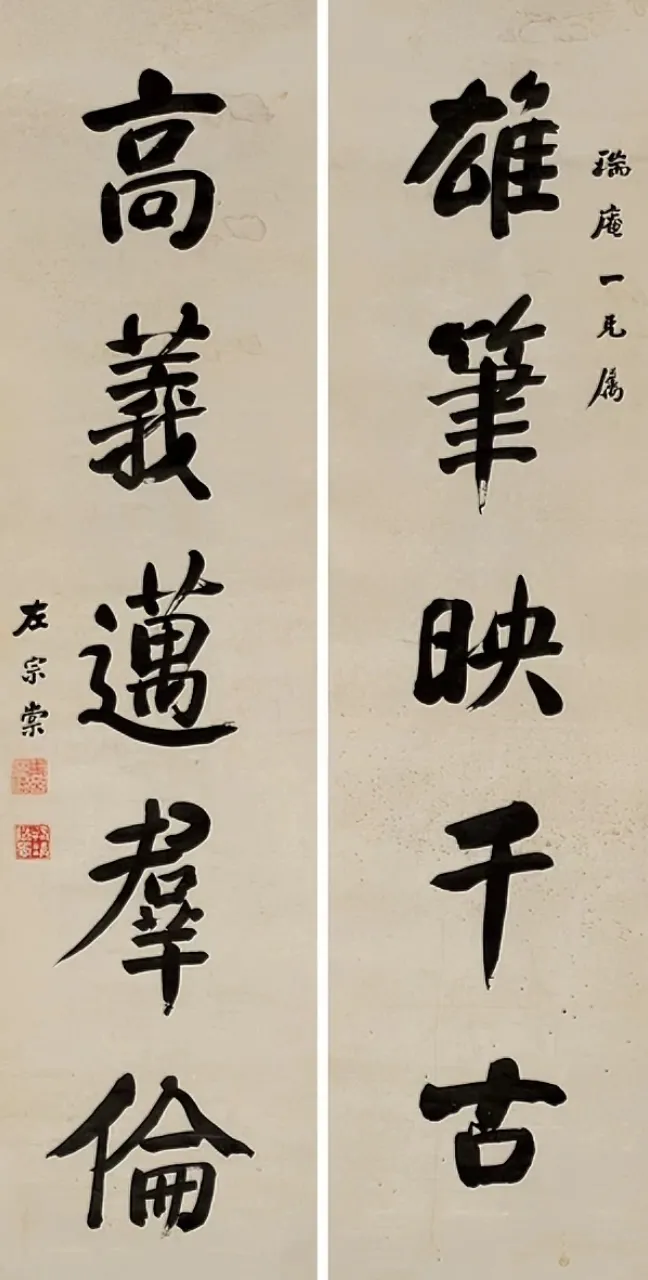 瑞庵一兄属
雄筆映千古
高義邁羣倫
左宗棠